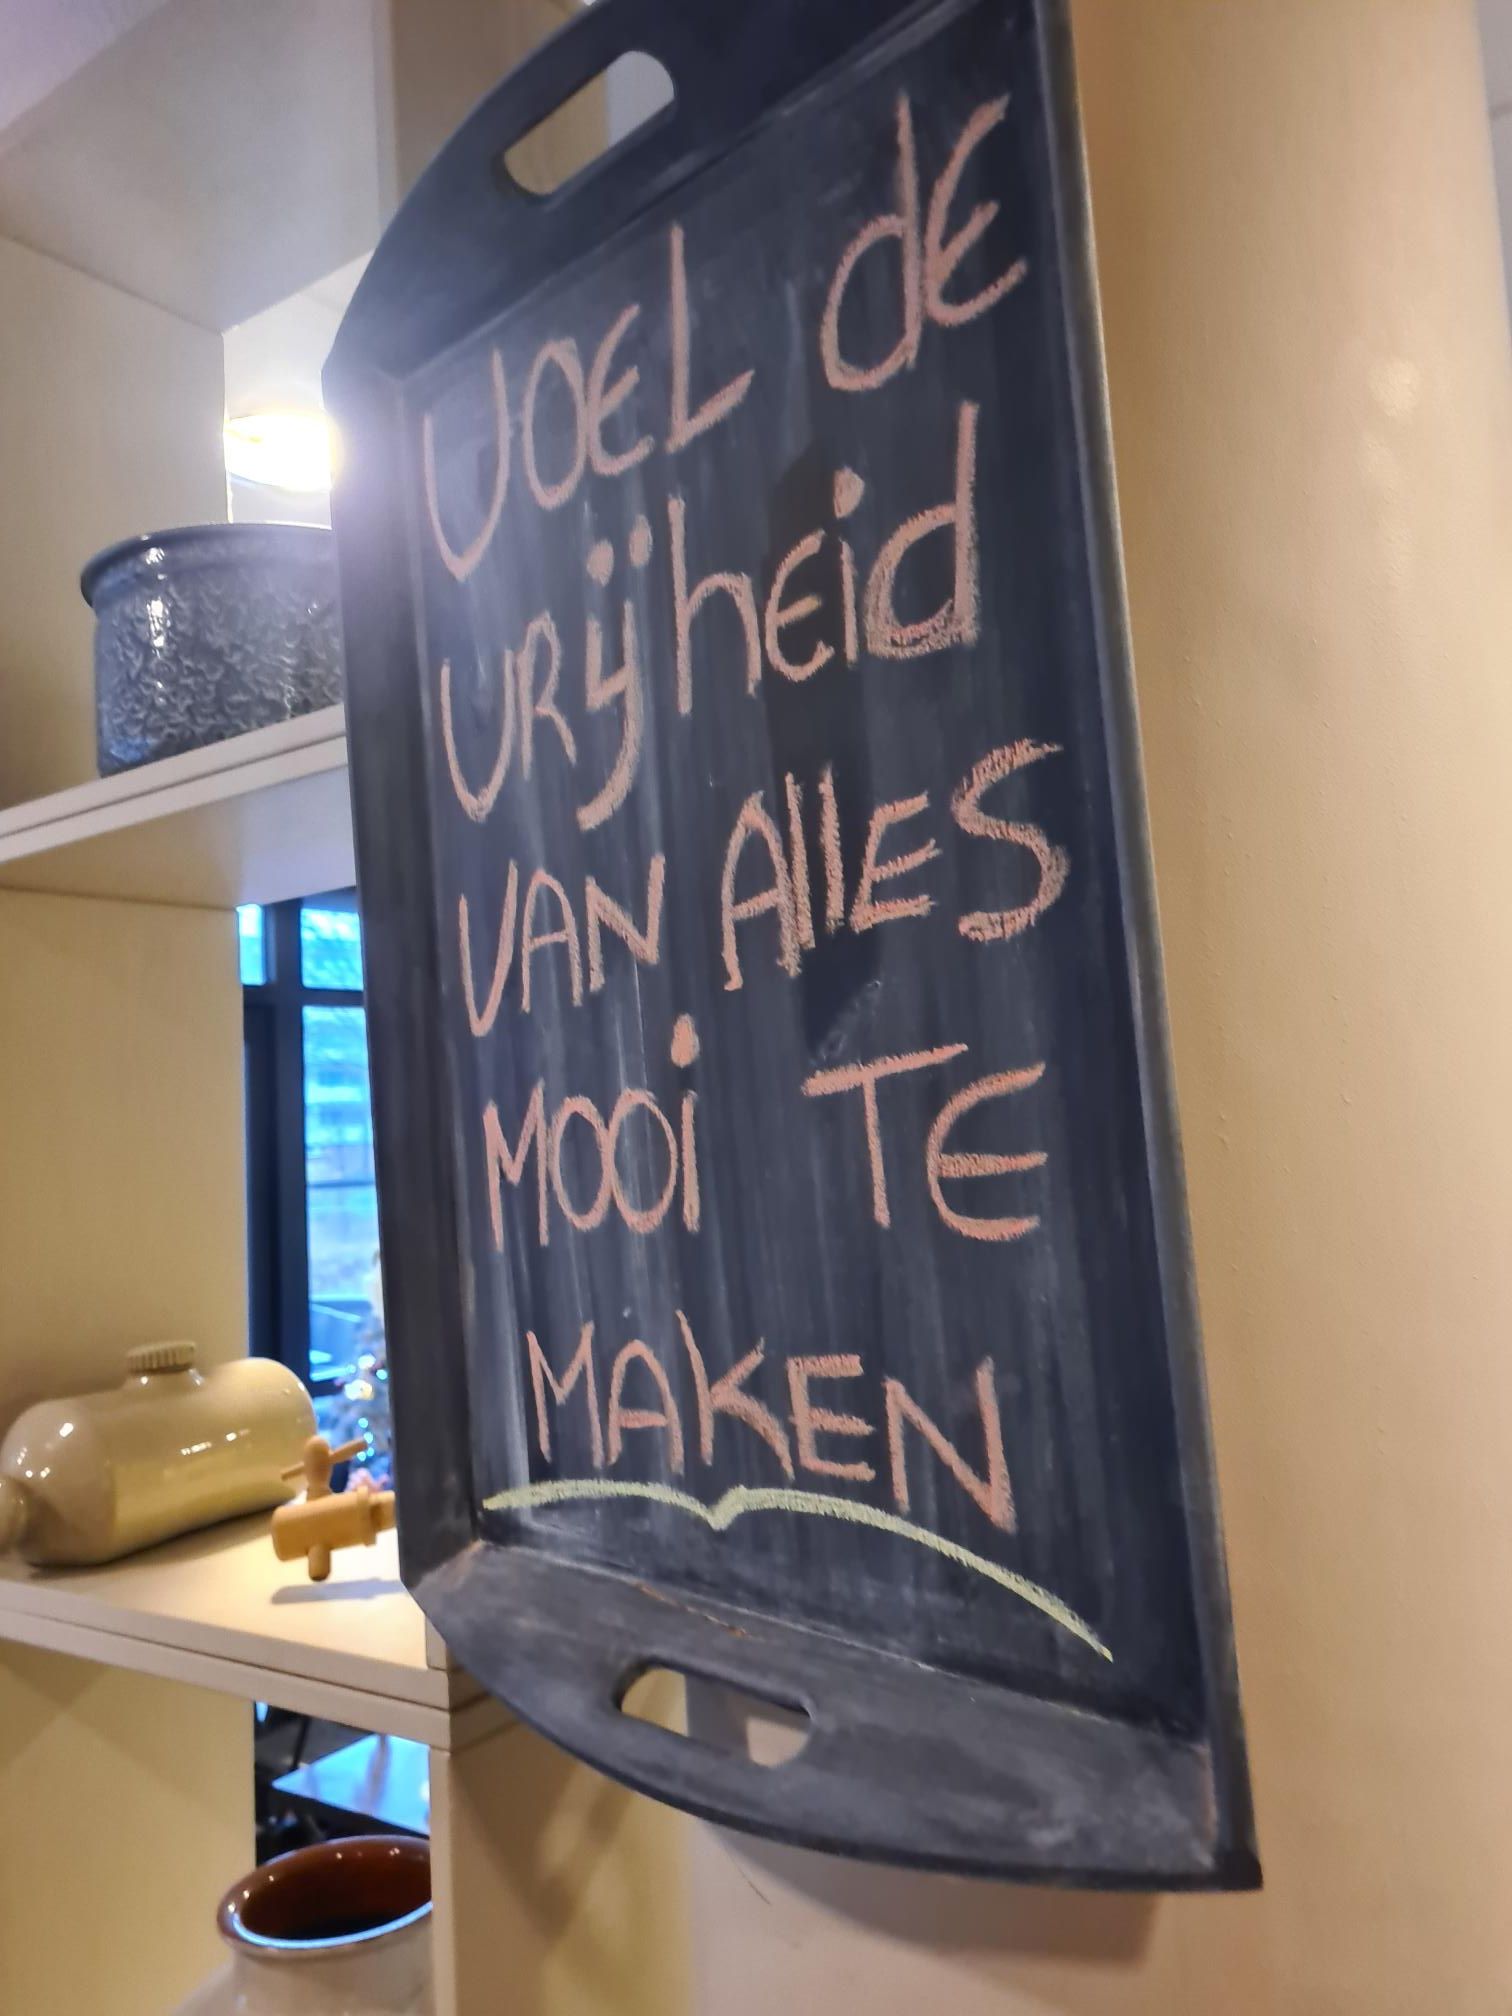 VOEL dE
VRijheid
VAN AllES
MOOi TE
MAKEN